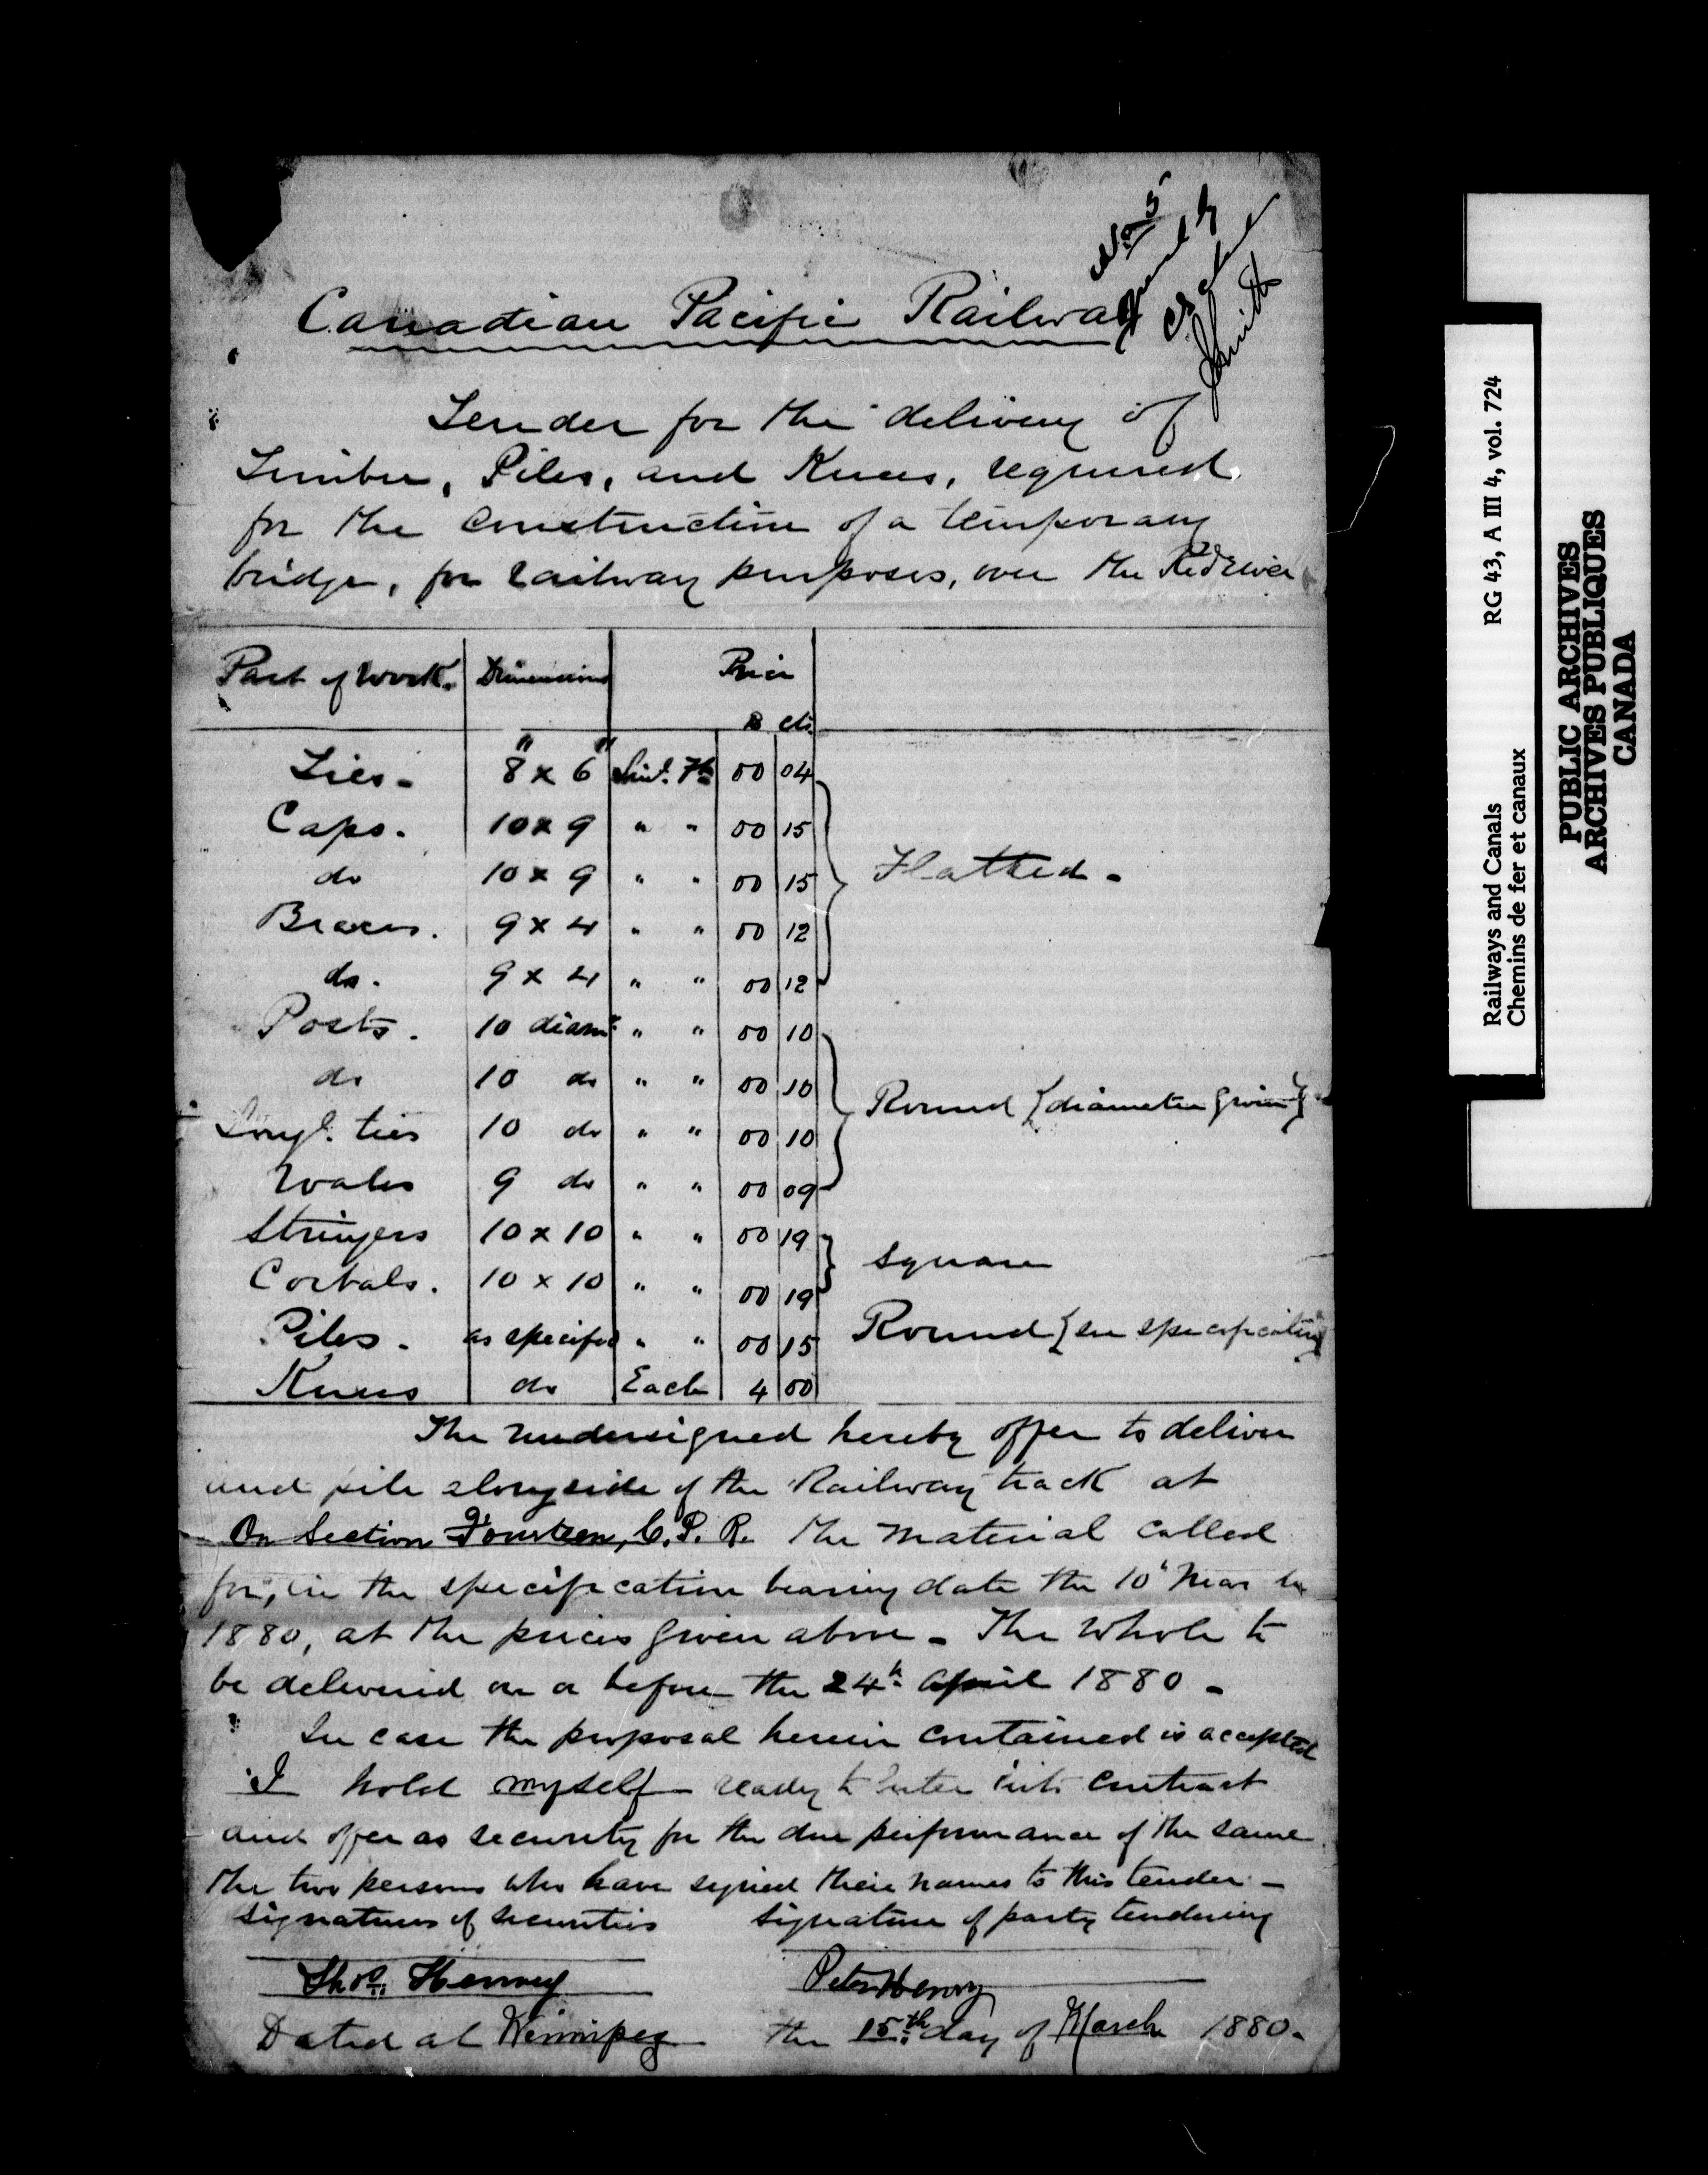 No 5
Canadian Pacific Railway
Smith
Tender for the delivery of
Timber, Piles, and Knees, required
for the construction of a temporary
bridge, for railway purposes, over the Red River
Part of Work. Dimensions Price
$ cts.
Ties - 8" x 6" Linl. Ft 00 04
Caps. 10 x 9 " " 00 15
do 10 x 9 " " 00 15 Flatted -
Braces. 9 x 4 " " 00 12
do. 9 x 4 " " 00 12
Posts. 10 diamr. " " 00 10
do 10 do " " 00 10 Round {diameter given}
Longl. ties 10 do " " 00 10
Wales 9 do " " 00 09
Stringers 10 x 10 " " 00 19 square
Corbals. 10 x 10 " " 00 19
Piles. as specified " " 00 15 Round {see specification}
Knees do Each 4 00
The undersigned hereby offer to deliver
and pile alongside of the Railway track at
On Section Fourteen, C. P. R. the material called
for, in the specification bearing date the 10th March
1880, at the prices given above - The whole to
be delivered on or before the 24th. April 1880 -
In case the proposal herein contained is accepted
I hold myself ready to enter into contract
and offer as security for the due performance of the same
the two persons who have signed their names to this tender -
signatures of securities signature of party tendering
Thos. Henry Peter Henry
Dated at Winnipeg the 15th. day of March 1880.
Railways and Canals RG 43, A III 4, vol. 724
Chemins de fer et canaux
PUBLIC ARCHIVES
ARCHIVES PUBLIQUES
CANADA